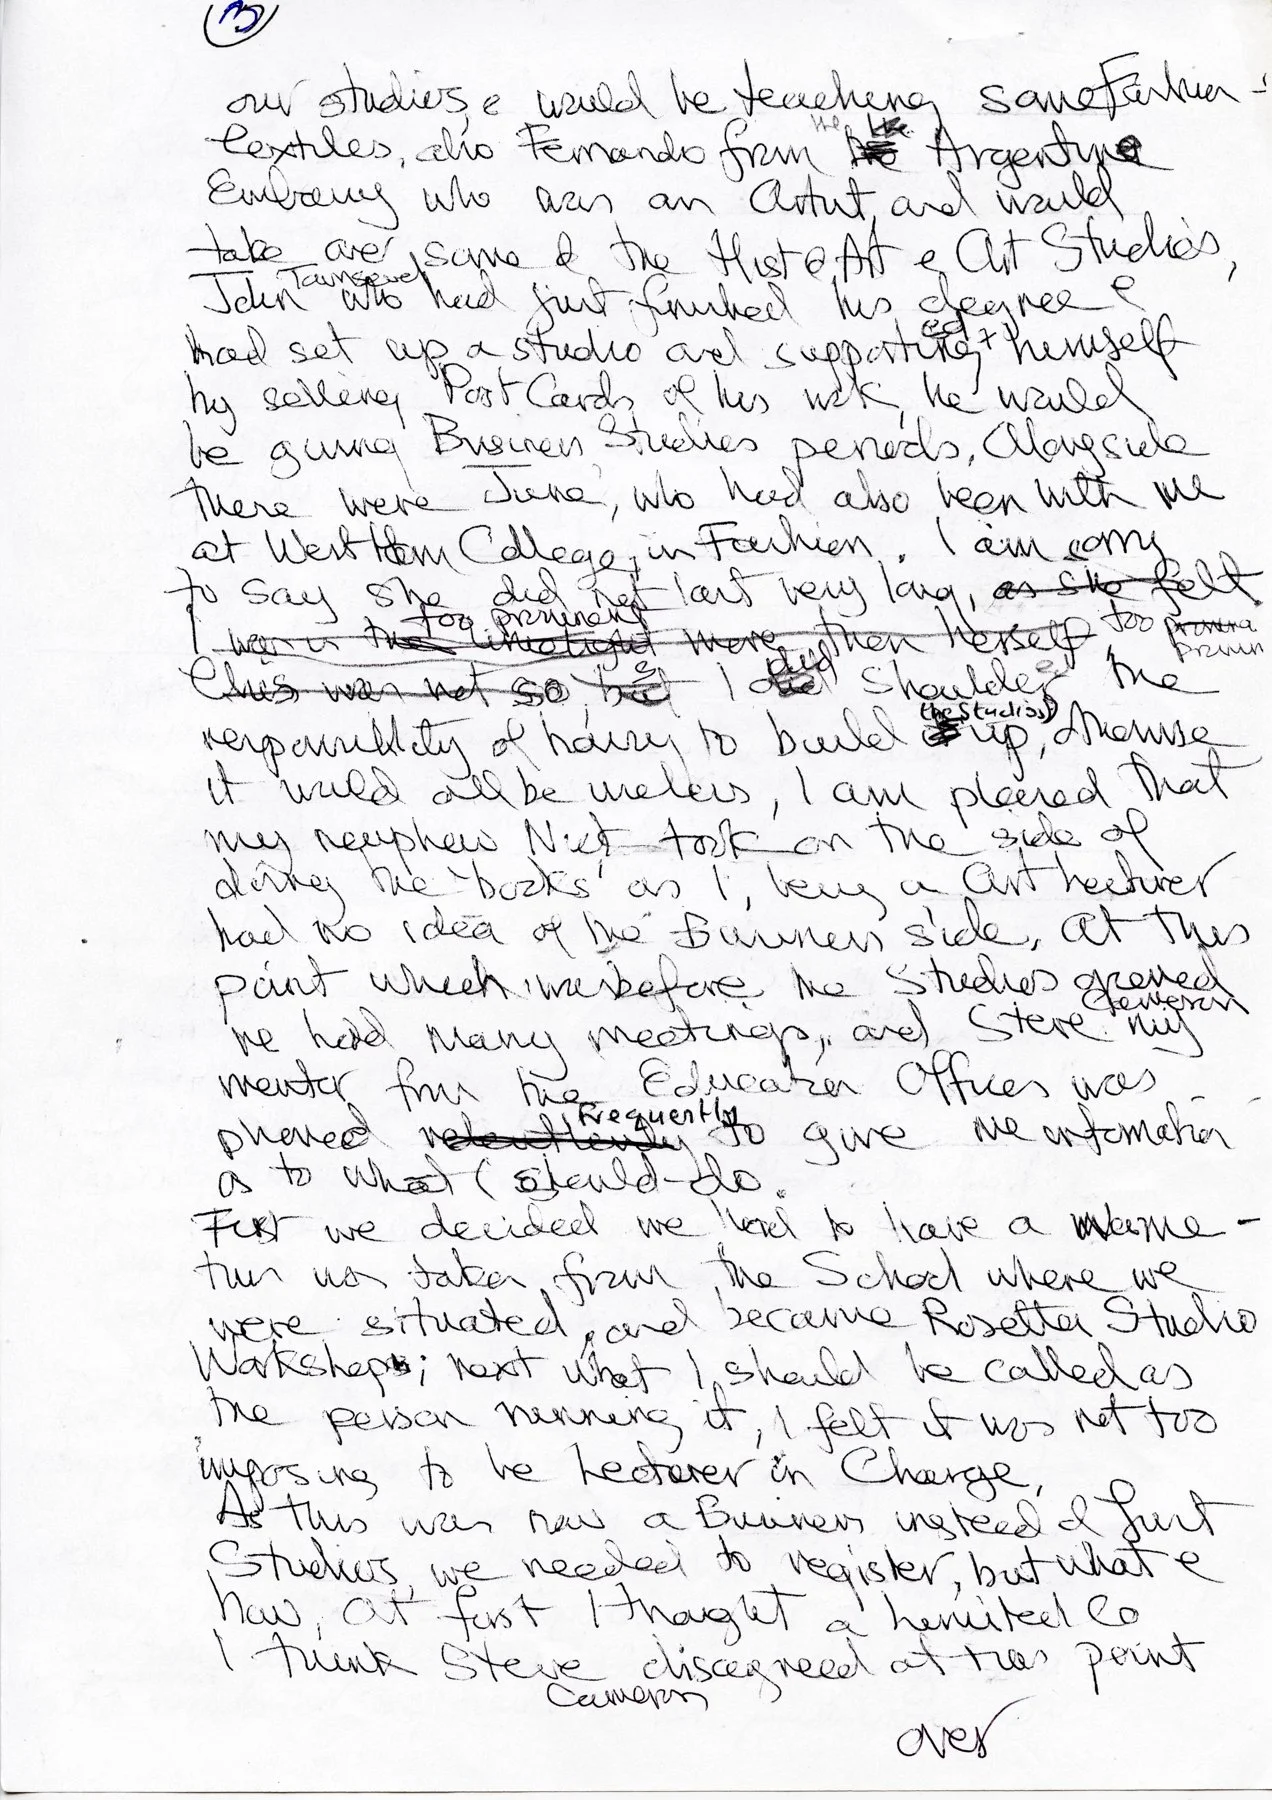 3
our studios, e would be teaching some Fashion -
textiles, also Fernando from the Argentine
Embassy who was an Artist, and would
take over some of the Hist o Art e Art Studios,
John Townsend who had just finished his degree e
had set up a studio and supported himself
by selling Post Cards of his work, he would
be giving Business Studies periods, Alongside
there were June, who had also been with me
at West Ham College, in Fashion. I am sorry
to say she did not last very long, as she felt
I was in the limelight too prominent more then herself too
this was not so but I did shoulder the
responsibility of having to build the Studios up, otherwise
it would all be useless, I am pleased that
my neuphew Nick took on the side of
doing the 'books' as I, being a Art Lecturer
had no idea of the Business side. At this
point which was before the Studios opened
we had many meetings, and Steve Cameron my
mentor from the Education Offices was
phoned frequently to give me information
as to what I should do.
First we decided we had to have a name -
this was taken from the School where we
were situated, and became Rosetta Studio
Workshops; next what I should be called as
the person running it, I felt it was not too
imposing to be Lecturer in Charge.
As this was now a Business instead of Just
Studios, we needed to register, but what e
how, At first I thought a Limited Co
I think Steve Cameron disagreed at this point
over